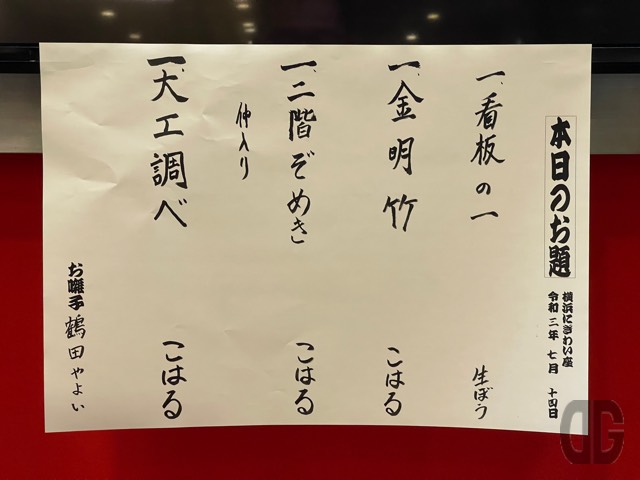 本日のお題
横浜にぎわい座
令和三年 七月 十四日
一、看板の一 生ぼう
一、金明竹 こはる
一、二階ぞめき こはる
仲入り
一、大工調べ こはる
お囃子 鶴田やよい
DG